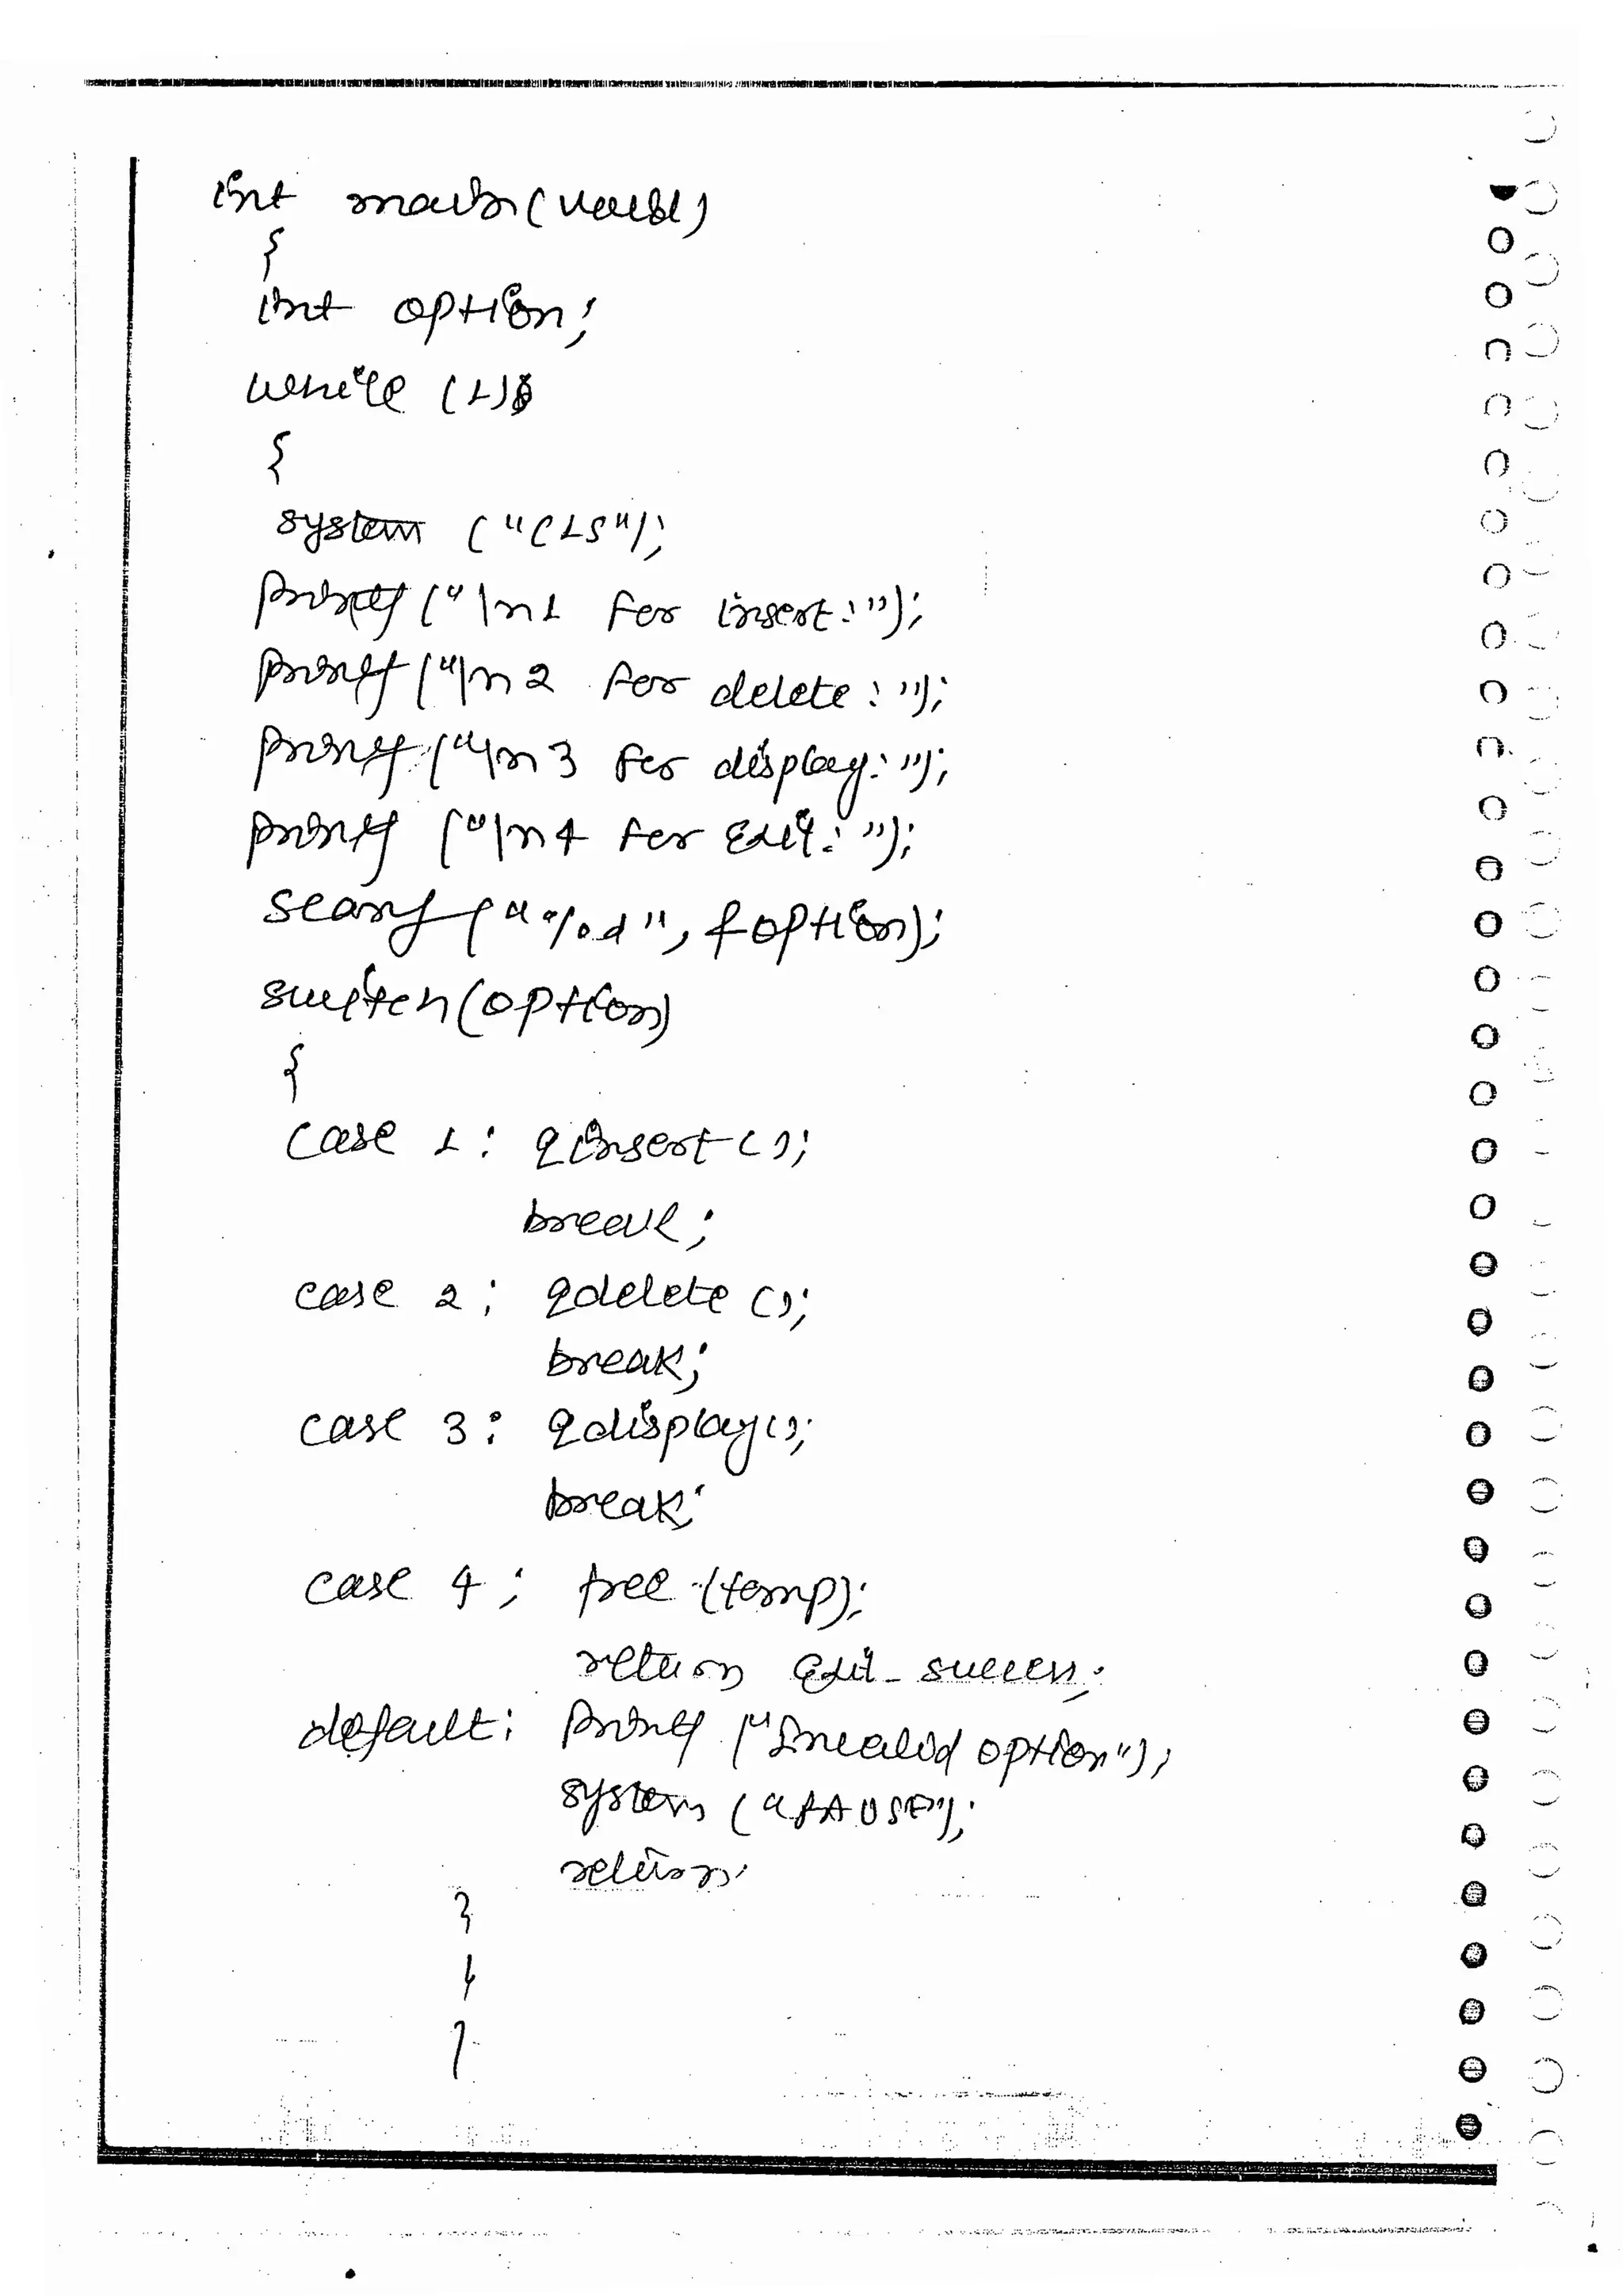 int main(void)
{
int option;
while (1)
{
system ("CLS");
printf("\n1 for insert:");
printf("\n2 for delete:");
printf("\n3 for display:");
printf("\n4 for Exit:");
scanf("%d", &option);
switch(option)
{
case 1: qinsert();
break;
case 2: qdelete();
break;
case 3: qdisplay();
break;
case 4: free(temp);
return Exit_success;
default: printf("Invalid option");
system ("PAUSE");
return;
}
}
}